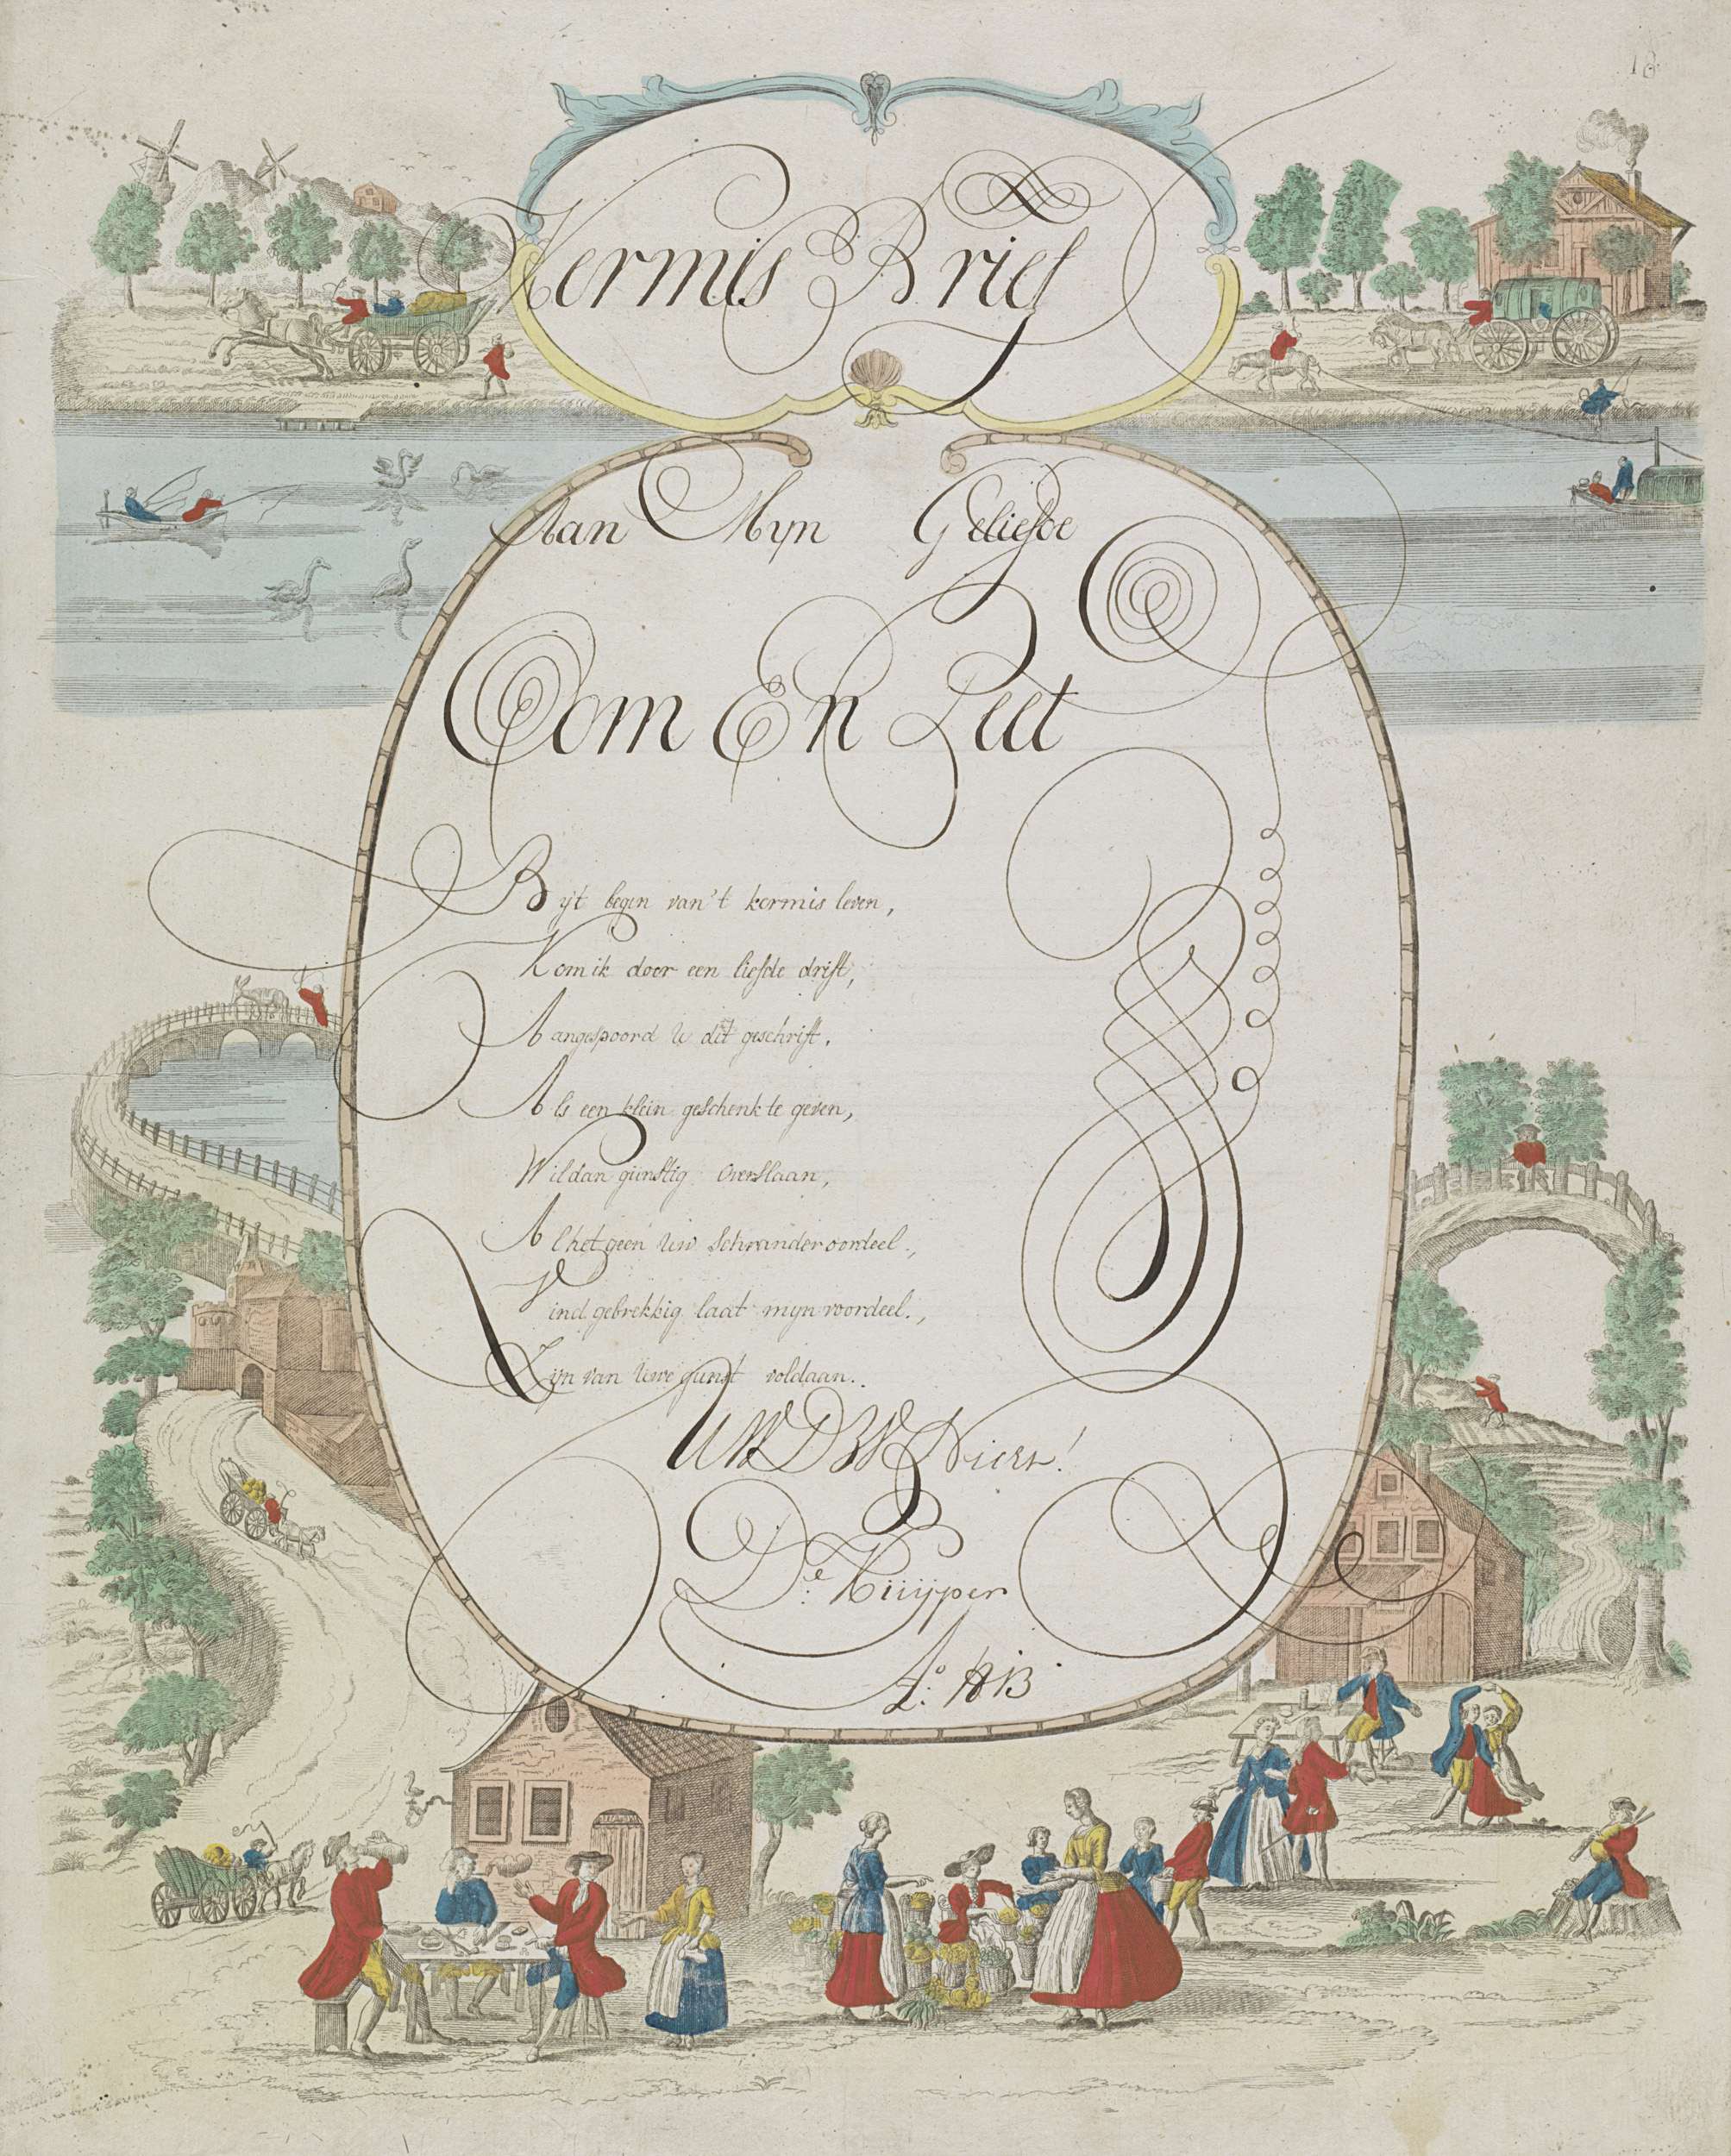 18
Kermis Brief
Aan Myn Geliefde
Oom En Peet
Byt begin van't kermis leven,
Kom ik door een liefde drift,
Aangespoord u dit geschrift,
Als een klein geschenk te geven,
Wil dan gunstig overslaan,
Al het geen Uw schrander oordeel,
Vind gebrekkig laat myn voordeel,
Zyn van Uwe gunst voldaan.
UWDW Dienr!
De Kuijper
Ao: 1813